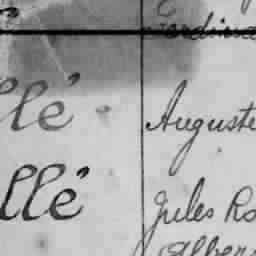 llé Auguste
llé Jules Ro
Alber